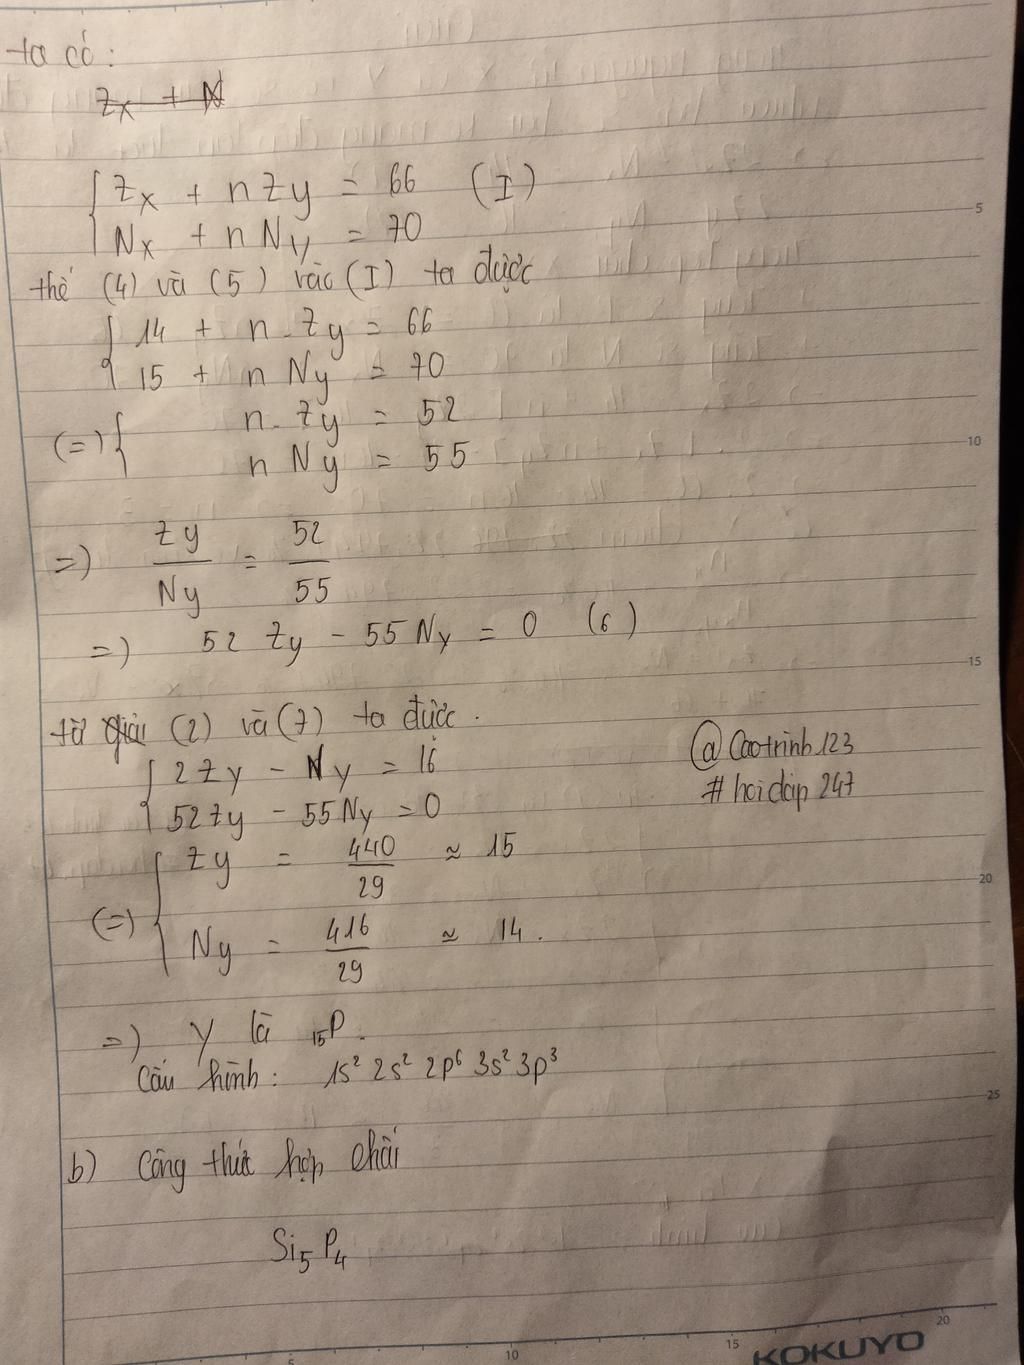 ta có:
Zx + N
Zx + nZy = 66 (I)
Nx + nNy = 70
thế (4) và (5) vào (I) ta được
14 + n.Zy = 66
15 + n Ny = 70
(=) n.Zy = 52
n Ny = 55
=) Zy/Ny = 52/55
=) 52 Zy - 55 Ny = 0 (6)
từ giải (2) và (7) ta được.
2Zy - Ny = 16
52Zy - 55Ny = 0
@Caotrinh123
#hoidap247
(=) Zy = 440/29 ≈ 15
Ny = 416/29 ≈ 14.
=) Y là ₁₅P.
Cấu hình: 1s² 2s² 2p⁶ 3s² 3p³
b) Công thức hợp chất
Si₅P₄
5 10 15 20 25
5 10 15 20
KOKUYO